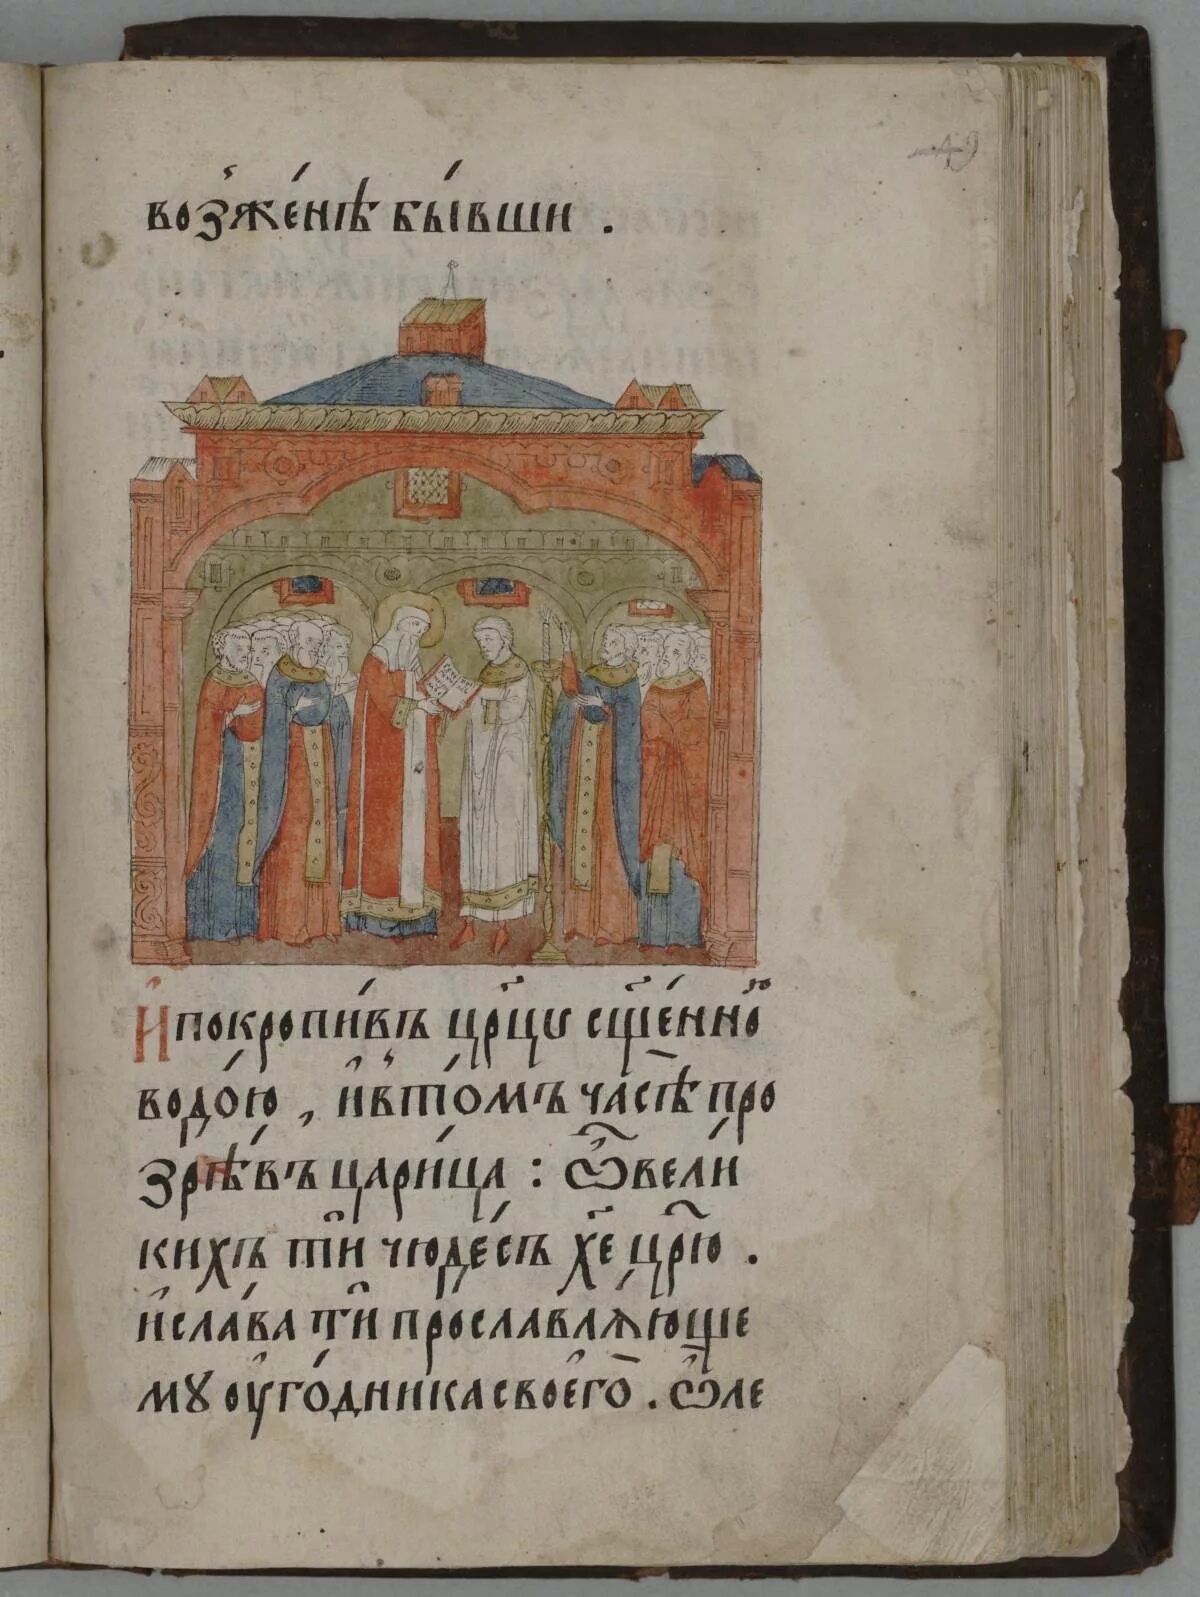 возжже́нiѣ бы́вши .
И҆покропи́въ цр҃цу сщ҃е́нно
водо́ю , и҆вто́мъ ча́сѣ про
зрѣ́въ цари́ца : ѽвели́
кихъ ти҆ чюде́съ хе҃ цр҃ю .
и҆сла́ва ти҆ прославлѧ́юще
мꙋ оу҆го́дника своего̀ . ѽле